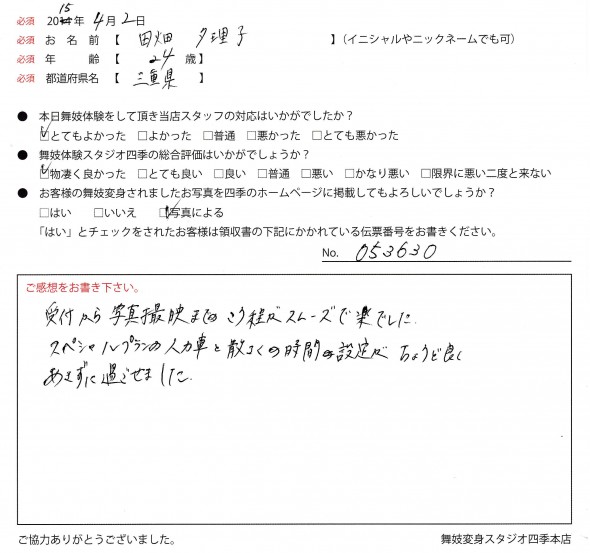 必須 2015年 4月 2日
必須 お名前【 田畑 夕理子 】(イニシャルやニックネームでも可)
必須 年齢【 24 歳】
必須 都道府県名【 三重県 】
● 本日舞妓体験をして頂き当店スタッフの対応はいかがでしたか?
☑とてもよかった □よかった □普通 □悪かった □とても悪かった
● 舞妓体験スタジオ四季の総合評価はいかがでしょうか?
☑物凄く良かった □とても良い □良い □普通 □悪い □かなり悪い □限界に悪い二度と来ない
● お客様の舞妓変身されましたお写真を四季のホームページに掲載してもよろしいでしょうか?
□はい □いいえ ☑写真による
「はい」とチェックをされたお客様は領収書の下記にかかれている伝票番号をお書きください。
No. 053630
ご感想をお書き下さい。
受付から写真撮映までのこう程がスムーズで楽でした。
スペシャルプランの人力車と散さくの時間の設定が ちょうど良く
あきずに過ごせました。
ご協力ありがとうございました。 舞妓変身スタジオ四季本店